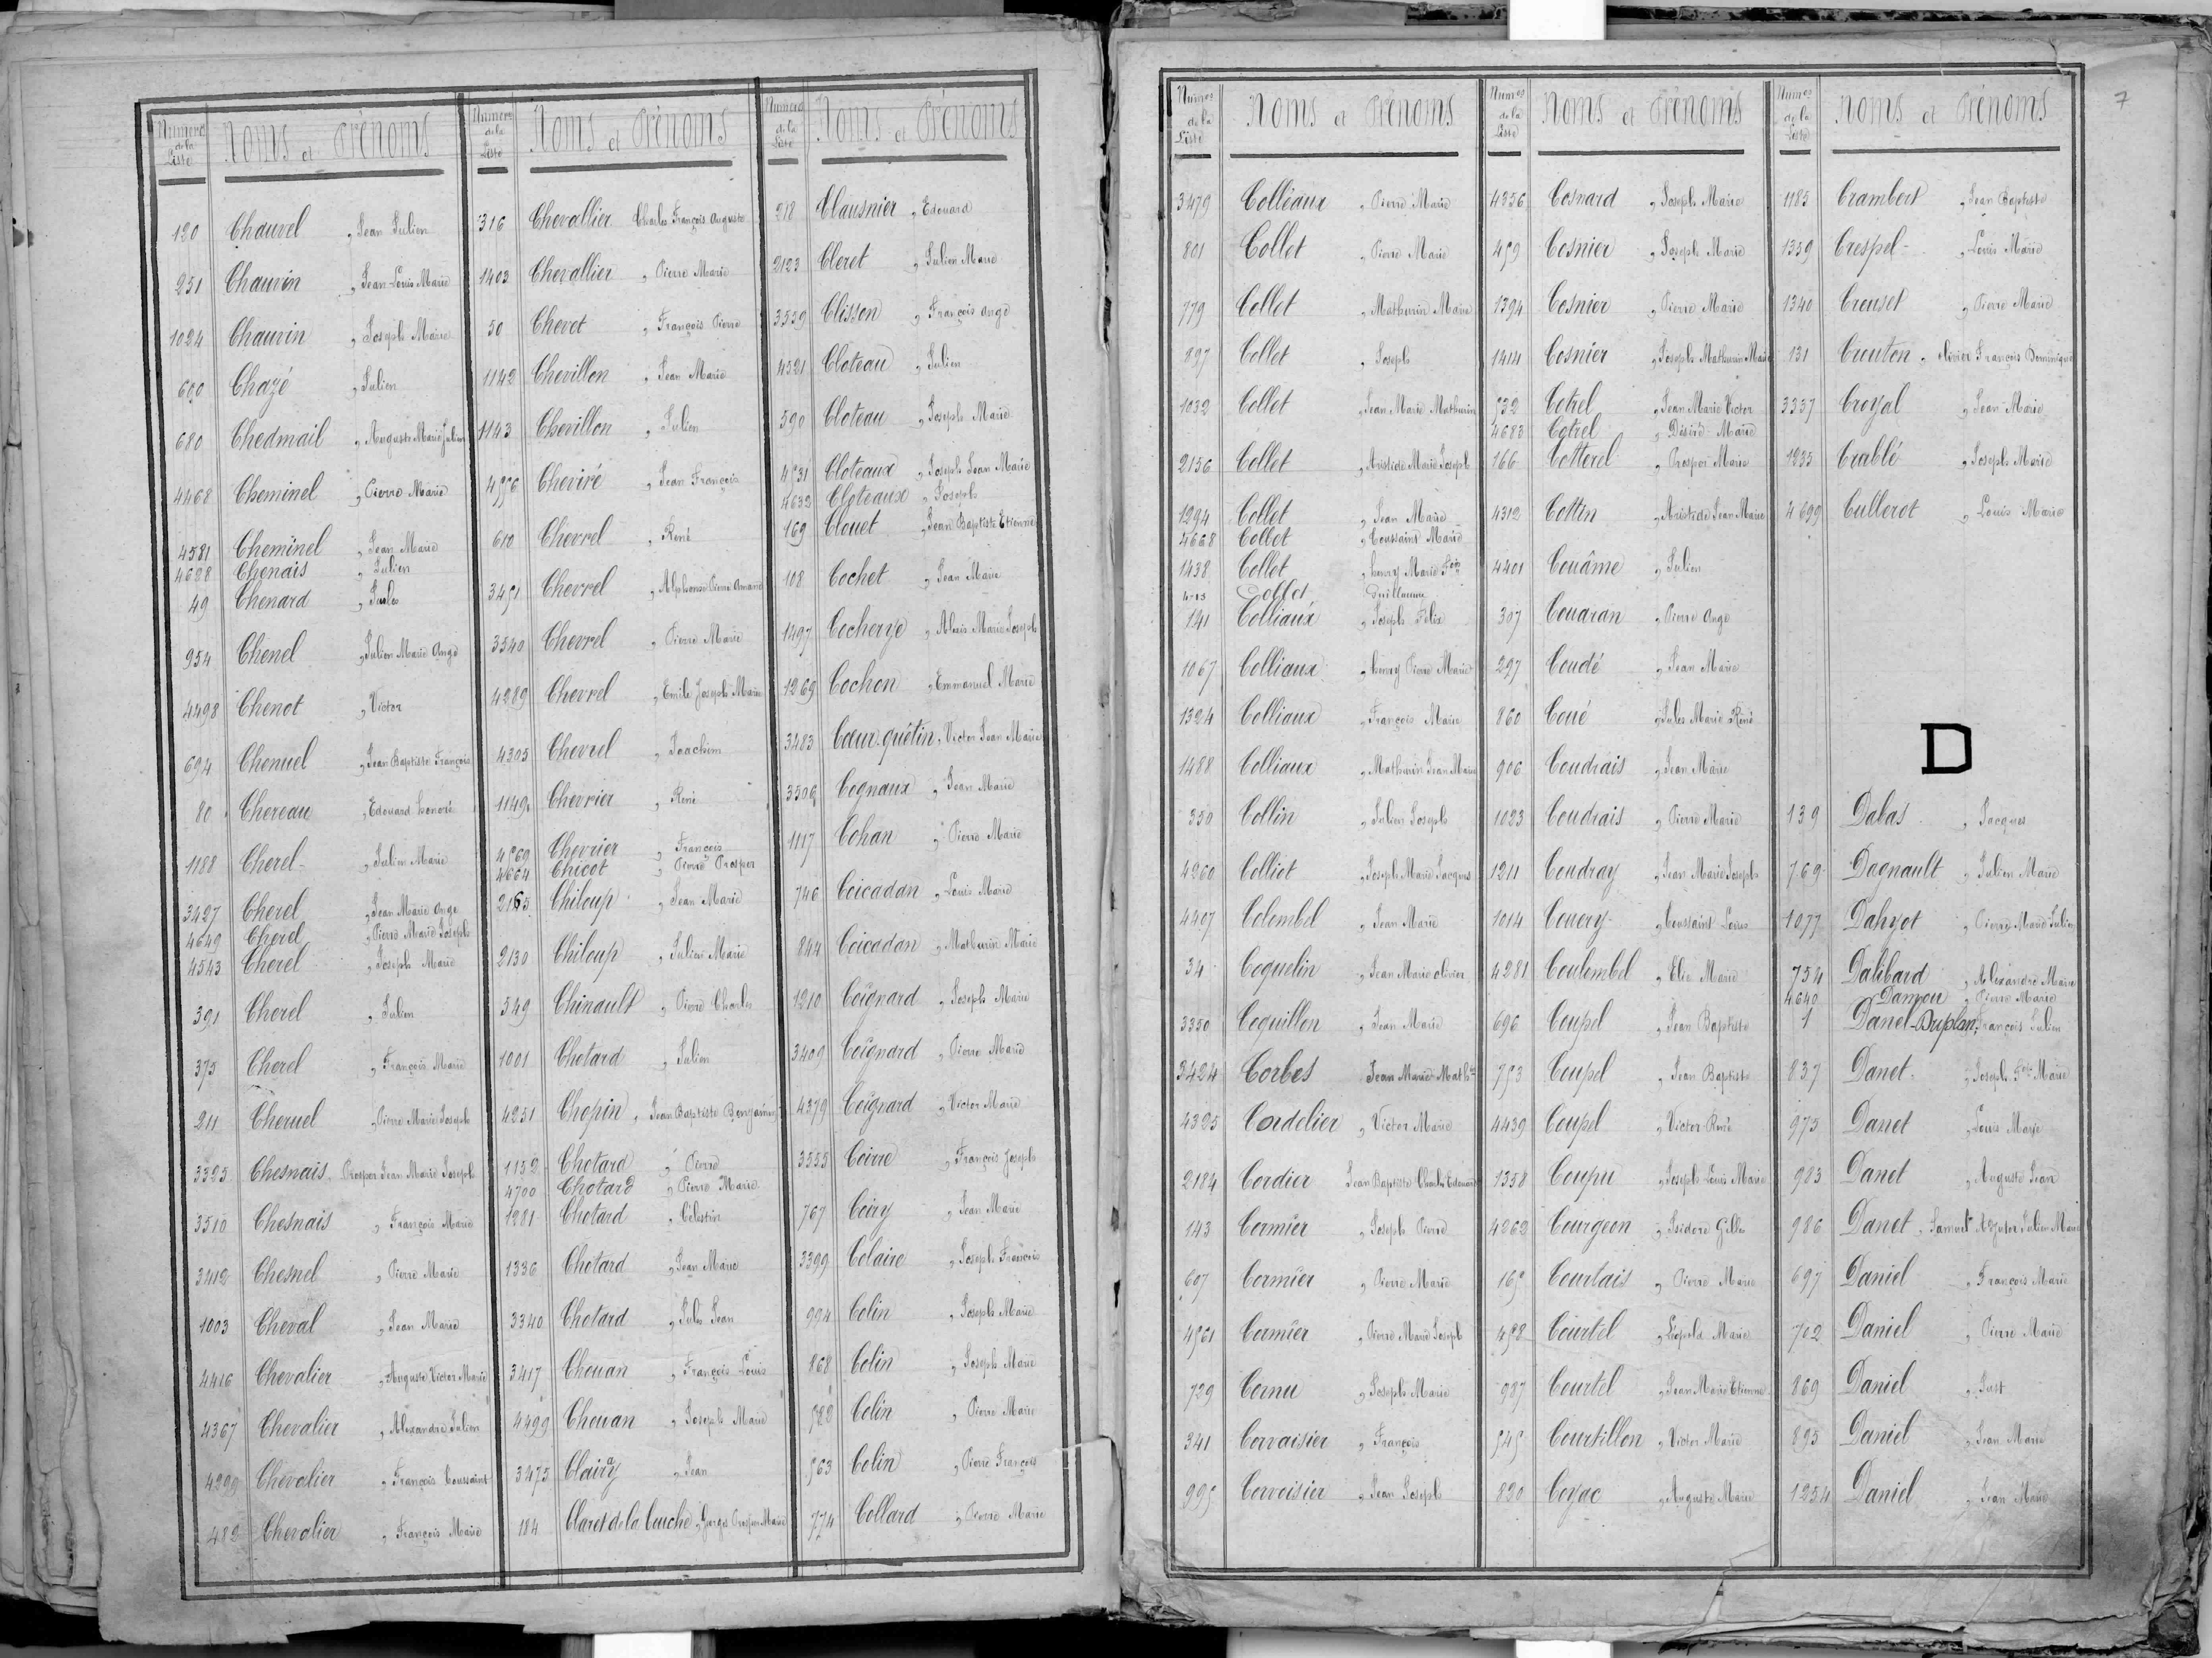 Numéro de la Liste
Noms et Prénoms
120 Chauvel, Jean Julien
251 Chauvin, Jean Louis Marie
1024 Chauvin, Joseph Marie
600 Chazé, Julien
680 Chedmail, Auguste Marie Julien
4468 Cheminel, Pierre Marie
4581 Cheminel, Jean Marie
4628 Chenais, Julien
49 Chenard, Jules
954 Chenel, Julien Marie Ange
4498 Chenot, Victor
694 Chenuel, Jean Baptiste François
80 Chereau, Edouard honoré
1188 Cherel, Julien Marie
3427 Cherel, Jean Marie Ange
4649 Cherel, Pierre Marie Joseph
4543 Cherel, Joseph Marie
391 Cherel, Julien
375 Cherel, François Marie
211 Cheruel, Pierre Marie Joseph
3325 Chesnais, Prosper Jean Marie Joseph
3510 Chesnais, François Marie
3412 Chesnel, Pierre Marie
1003 Cheval, Jean Marie
4416 Chevalier, Auguste Victor Marie
4367 Chevalier, Alexandre Julien
4299 Chevalier, François Toussaint
482 Chevalier, François Marie
Numéro de la Liste
Noms et Prénoms
316 Chevallier Charles François Auguste
1403 Chevallier, Pierre Marie
50 Chevet, François Pierre
1142 Chevillon, Jean Marie
1143 Chevillon, Julien
4556 Cheviré, Jean François
610 Chevrel, René
3451 Chevrel, Alphonse Pierre Armand
3540 Chevrel, Pierre Marie
4289 Chevrel, Emile Joseph Marie
4303 Chevrel, Joachim
1149 Chevrier, René
4569 Chevrier, François
4664 Chicot, Pierre Prosper
2165 Chiloup, Jean Marie
2130 Chiloup, Julien Marie
349 Chinault, Pierre Charles
1001 Chotard, Julien
4251 Chopin, Jean Baptiste Benjamin
1152 Chotard, Pierre
4700 Chotard, Pierre Marie
1281 Chotard, Célestin
1336 Chotard, Jean Marie
3340 Chotard, Jules Jean
3417 Chouan, François Louis
4499 Chouan, Joseph Marie
3475 Clairy, Jean
184 Claret de la Touche, Georges Prosper Marie
Numéro de la Liste
Noms et Prénoms
212 Clausnier, Edouard
2123 Cleret, Julien Marie
3559 Clisson, François Ange
4521 Cloteau, Julien
590 Cloteau, Joseph Marie
4531 Cloteaux, Joseph Jean Marie
4632 Cloteaux, Joseph
169 Clouet, Jean Baptiste Etienne
108 Cochet, Jean Marie
1497 Cocherye, Alexis Marie Joseph
1269 Cochon, Emmanuel Marie
3483 Cœur-quétin, Victor Jean Marie
3306 Cognaux, Jean Marie
1117 Cohan, Pierre Marie
746 Coicadan, Louis Marie
844 Coicadan, Mathurin Marie
1210 Coignard, Joseph Marie
3409 Coignard, Pierre Marie
4379 Coignard, Victor Marie
3555 Coirre, François Joseph
767 Coiry, Jean Marie
3399 Colaire, Joseph François
994 Colin, Joseph Marie
868 Colin, Joseph Marie
522 Colin, Pierre Marie
563 Colin, Pierre François
774 Collard, Pierre Marie
7
Numéo de la Liste
Noms et Prénoms
3479 Colleaux, Pierre Marie
801 Collet, Pierre Marie
779 Collet, Mathurin Marie
897 Collet, Joseph
1032 Collet, Jean Marie Mathurin
2156 Collet, Aristide Marie Joseph
1294 Collet, Jean Marie
4668 Collet, Toussaint Marie
1438 Collet, henry Marie Fois
Collet Guillaume
141 Colliaux, Joseph Félix
1067 Colliaux, henry Pierre Marie
1324 Colliaux, François Marie
1488 Colliaux, Mathurin Jean Marie
350 Collin, Julien Joseph
4260 Colliot, Joseph Marie Jacques
4407 Colombel, Jean Marie
34 Coquelin, Jean Marie olivier
3350 Coquillon, Jean Marie
3424 Corbes Jean Marie Math.
4325 Cordelier, Victor Marie
2184 Cordier Jean Baptiste Charles Edouard
143 Cormier, Joseph Pierre
607 Cormier, Pierre Marie
4561 Cormier, Pierre Marie Joseph
729 Cornu, Joseph Marie
341 Corvaisier, François
995 Corvoisier, Jean Joseph
Numéo de la Liste
Noms et Prénoms
4356 Cosnard, Joseph Marie
459 Cosnier, Joseph Marie
1394 Cosnier, Pierre Marie
1414 Cosnier, Joseph Mathurin Marie
532 Cotrel, Jean Marie Victor
4683 Cotrel, Désiré Marie
166 Cotterel, Prosper Marie
4312 Cottin, Aristide Jean Marie
4401 Couâme, Julien
307 Couaran, Pierre Ange
297 Coudé, Jean Marie
860 Coué, Jules Marie René
906 Coudrais, Jean Marie
1023 Coudrais, Pierre Marie
1211 Coudray, Jean Marie Joseph
1014 Couery, Toussaint Louis
4281 Coulombel, Elie Marie
696 Coupel, Jean Baptiste
753 Coupel, Jean Baptiste
4439 Coupel, Victor René
1358 Coupu, Joseph Louis Marie
4262 Courgeon, Isidore Gilles
165 Courtais, Pierre Marie
458 Courtel, Léopold Marie
987 Courtel, Jean Marie Etienne
545 Courtillon, Victor Marie
820 Coyac, Auguste Marie
Numéo de la Liste
Noms et Prénoms
1185 Crambert, Jean Baptiste
1359 Crespel, Louis Marie
1340 Creuset, Pierre Marie
131 Crouton, olivier François Dominique
3337 Croyal, Jean Marie
1235 Crublé, Joseph Marie
4699 Cullerot, Louis Marie
D
139 Dabas, Jacques
769 Dagnault, Julien Marie
1077 Dahyot, Pierre Marie Julien
754 Dalibard, Alexandre Marie
4640 Damou, Pierre Marie
1 Danel-Duplan, François Julien
837 Danet, Joseph Fois Marie
975 Danet, Louis Marie
983 Danet, Auguste Jean
986 Danet, Samuel Auguste Julien Marie
697 Daniel, François Marie
702 Daniel, Pierre Marie
869 Daniel, Just
895 Daniel, Jean Marie
1254 Daniel, Jean Marie